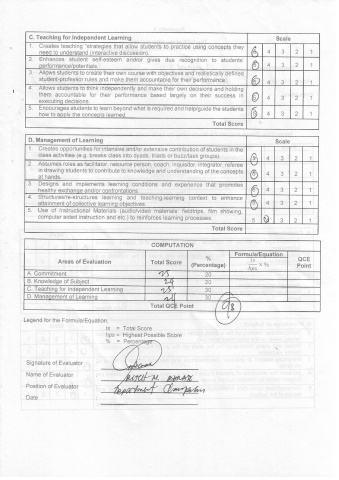 C. Teaching for Independent Learning Scale
1. Creates teaching strategies that allow students to practice using concepts they 5 4 3 2 1
need to understand (interactive discussion).
2. Enhances student self-esteem and/or gives due recognition to students' 5 4 3 2 1
performance/potentials.
3. Allows students to create their own course with objectives and realistically defined 5 4 3 2 1
student-professor rules and make them accountable for their performance.
4. Allows students to think independently and make their own decisions and holding 5 4 3 2 1
them accountable for their performance based largely on their success in
executing decisions.
5. Encourages students to learn beyond what is required and help/guide the students 5 4 3 2 1
how to apply the concepts learned.
Total Score
D. Management of Learning Scale
1. Creates opportunities for intensive and/or extensive contribution of students in the 5 4 3 2 1
class activities (e.g. breaks class into dyads, triads or buzz/task groups).
2. Assumes roles as facilitator, resource person, coach, inquisitor, integrator, referee 5 4 3 2 1
in drawing students to contribute to knowledge and understanding of the concepts
at hands.
3. Designs and implements learning conditions and experience that promotes 5 4 3 2 1
healthy exchange and/or confrontations.
4. Structures/re-structures learning and teaching-learning context to enhance 5 4 3 2 1
attainment of collective learning objectives.
5. Use of Instructional Materials (audio/video materials: fieldtrips, film showing, 5 4 3 2 1
computer aided instruction and etc.) to reinforces learning processes.
Total Score
COMPUTATION
Areas of Evaluation Total Score % (Percentage) Formula/Equation ts/hps x % QCE Point
A. Commitment 25 20
B. Knowledge of Subject 24 20
C. Teaching for Independent Learning 25 30
D. Management of Learning 24 30
Total QCE Point 98
Legend for the Formula/Equation:
ts = Total Score
hps = Highest Possible Score
% = Percentage
Signature of Evaluator
Name of Evaluator
Position of Evaluator Department Chairperson
Date